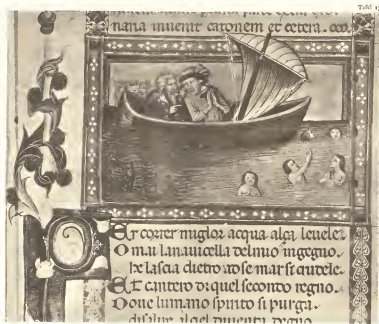 Tafel
naria inuenit catonem et cetera. 
Er correr miglor acqua alça leuele
Omai la nauicella del mio ingegno.
he lascia dietro ad se mar si qudele.
Et cantero di quel secondo regno.
Doue lumano spirito si purga.